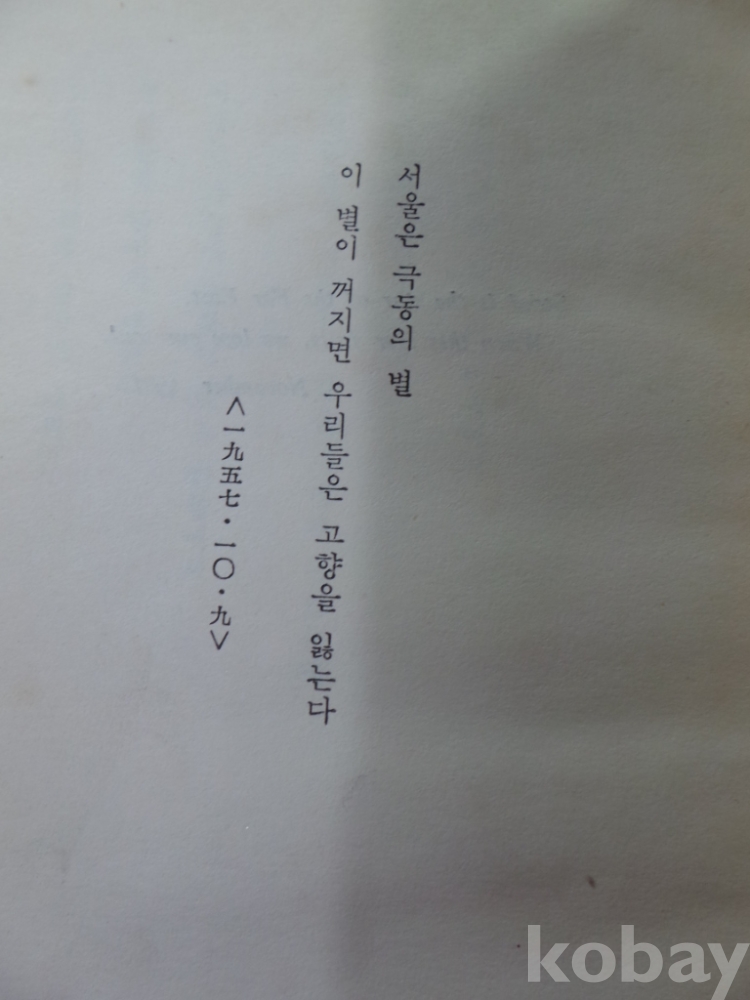 서울은 극동의 별
이 별이 꺼지면 우리들은 고향을 잃는다
<一九五七·一〇·九>
kobay